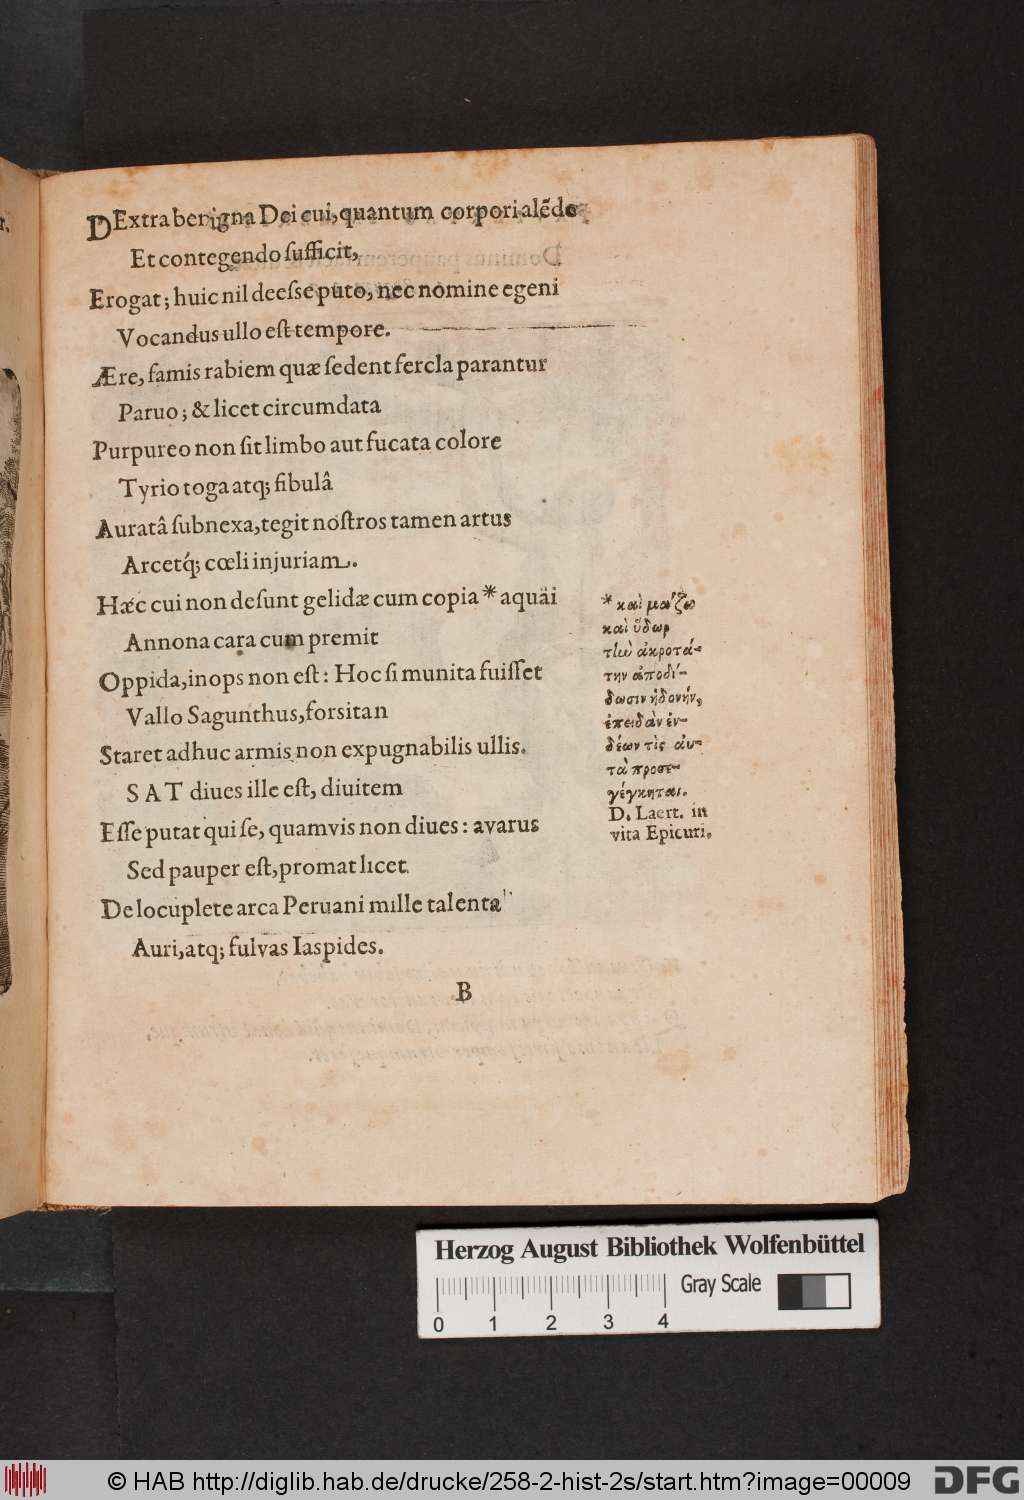 DExtra benigna Dei cui, quantum corpori alēdo
Et contegendo ſufficit,
Erogat; huic nil deeſse puto, nec nomine egeni
Vocandus ullo eſt tempore.
Ære, famis rabiem quæ ſedent fercla parantur
Paruo; & licet circumdata
Purpureo non ſit limbo aut fucata colore
Tyrio toga atq; fibulâ
Auratâ ſubnexa, tegit noſtros tamen artus
Arcetq́; cœli injuriam.
Hæc cui non deſunt gelidæ cum copia * aquäi
Annona cara cum premit
Oppida, inops non eſt: Hoc ſi munita fuiſſet
Vallo Sagunthus, forſitan
Staret adhuc armis non expugnabilis ullis.
SAT diues ille eſt, diuitem
Eſſe putat qui ſe, quamvis non diues: avarus
Sed pauper eſt, promat licet
De locuplete arca Peruani mille talenta
Auri, atq; fulvas Iaspides.
B
* καὶ μάζα
καὶ ὕδωρ
τὴν ἀκροτά-
την ἀποδί-
δωσιν ἡδονήν,
ἐπειδὰν ἐν-
δέων τὶς αὐ-
τὰ προσε-
γέγκηται.
D. Laert. in
vita Epicuri.
Herzog August Bibliothek Wolfenbüttel
Gray Scale
0 1 2 3 4
© HAB http://diglib.hab.de/drucke/258-2-hist-2s/start.htm?image=00009
DFG